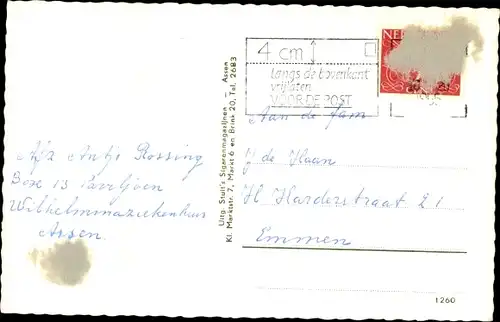 NE
4 cm
langs de bovenkant
vrijlaten
VOOR DE POST
Afz Antje Rossing
Box 13 Paviljoen
Wilhelminaziekenhuis
Assen.
Uitg. Stuit's Sigarenmagazijnen – Assen
Kl. Marktstr. 7, Markt 6 en Brink 20, Tel. 2683
Aan de fam
J de Haan
H Harderstraat 21
Emmen
1260